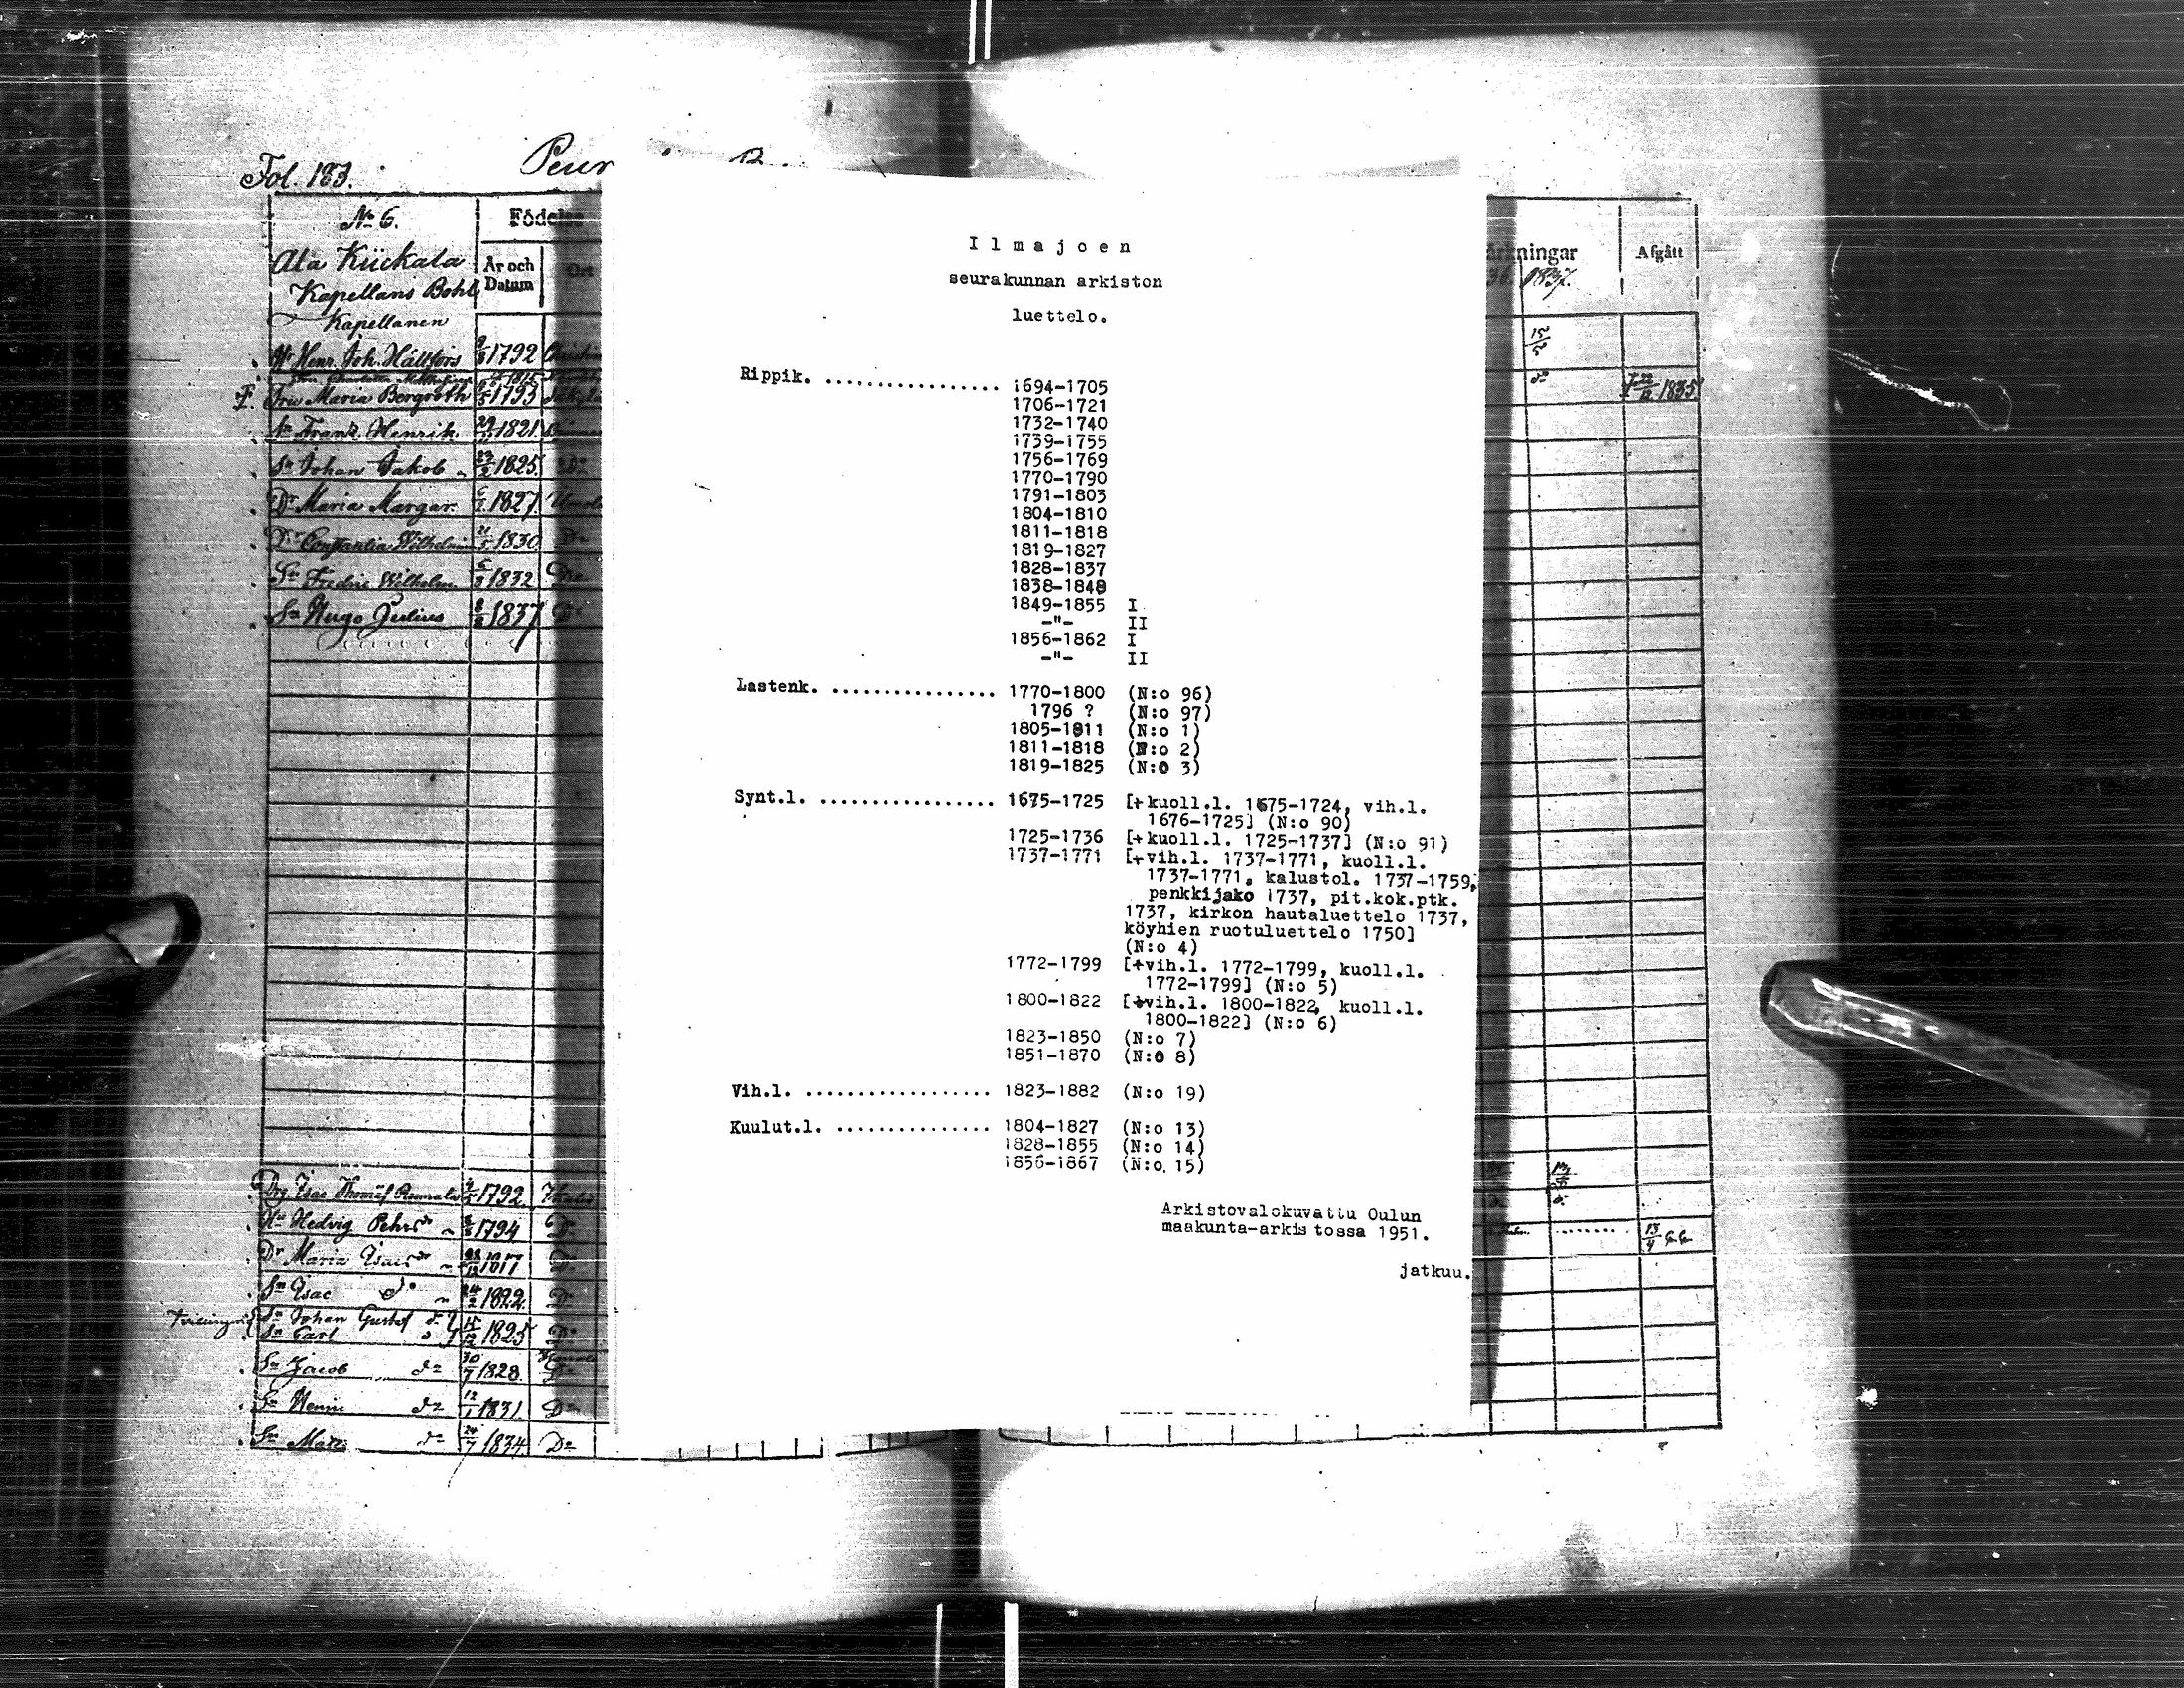 Fol. 183.
No 6.
Födelse
Kapellans Bohl
År och
Datum
Ort
Kapellanen
Henr. Joh. Hällfors 1792
Fru Maria Bergroth 1793
Sn Franz Henrik 1821
Sn Johan Jakob 1825
Dr Maria Margar. 1827
1830 Do
Sn Fredric Wilhelm 1832 Do
Sn Hugo Julius 1837 Do
1792
Hedvig Pehrsdr 1794 Do
Dr Maria Isacsdr 1817 Do
Sn Isac do 1822 Do
Sn Johan Gustaf
Sn Carl 1825 Do
Sn Jacob do 30/7 1828
Sn Henric do 1831 Do
Sn Matts do 1834 Do
Ilmajoen
seurakunnan arkiston
luettelo.
Rippik. ................ 1694-1705
1706-1721
1732-1740
1739-1755
1756-1769
1770-1790
1791-1803
1804-1810
1811-1818
1819-1827
1828-1837
1838-1848
1849-1855 I
-"- II
1856-1862 I
-"- II
Lastenk. ................ 1770-1800 (N:o 96)
1796 ? (N:o 97)
1805-1811 (N:o 1)
1811-1818 (N:o 2)
1819-1825 (N:o 3)
Synt.l. ................. 1675-1725 [+kuoll.l. 1675-1724, vih.l.
1676-1725] (N:o 90)
1725-1736 [+kuoll.l. 1725-1737] (N:o 91)
1737-1771 [+vih.l. 1737-1771, kuoll.l.
1737-1771, kalustol. 1737-1759,
penkkijako 1737, pit.kok.ptk.
1737, kirkon hautaluettelo 1737,
köyhien ruotuluettelo 1750]
(N:o 4)
1772-1799 [+vih.l. 1772-1799, kuoll.l.
1772-1799] (N:o 5)
1800-1822 [+vih.l. 1800-1822, kuoll.l.
1800-1822] (N:o 6)
1823-1850 (N:o 7)
1851-1870 (N:o 8)
Vih.l. .................. 1823-1882 (N:o 19)
Kuulut.l. ............... 1804-1827 (N:o 13)
1828-1855 (N:o 14)
1856-1867 (N:o. 15)
Arkistovalokuvattu Oulun
maakunta-arkistossa 1951.
jatkuu.
ningar
Afgått
1837.
1835